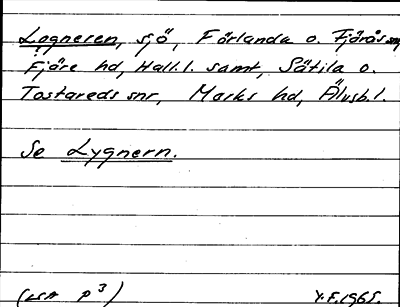 Lögnesen, sjö, Förlanda o. Fjärås snr,
Fjäre hd, Hall.l. samt, Sätila o.
Tostareds snr, Marks hd, Älvsb.l.
Se Lygnern.
p³) Y.F. 1965.